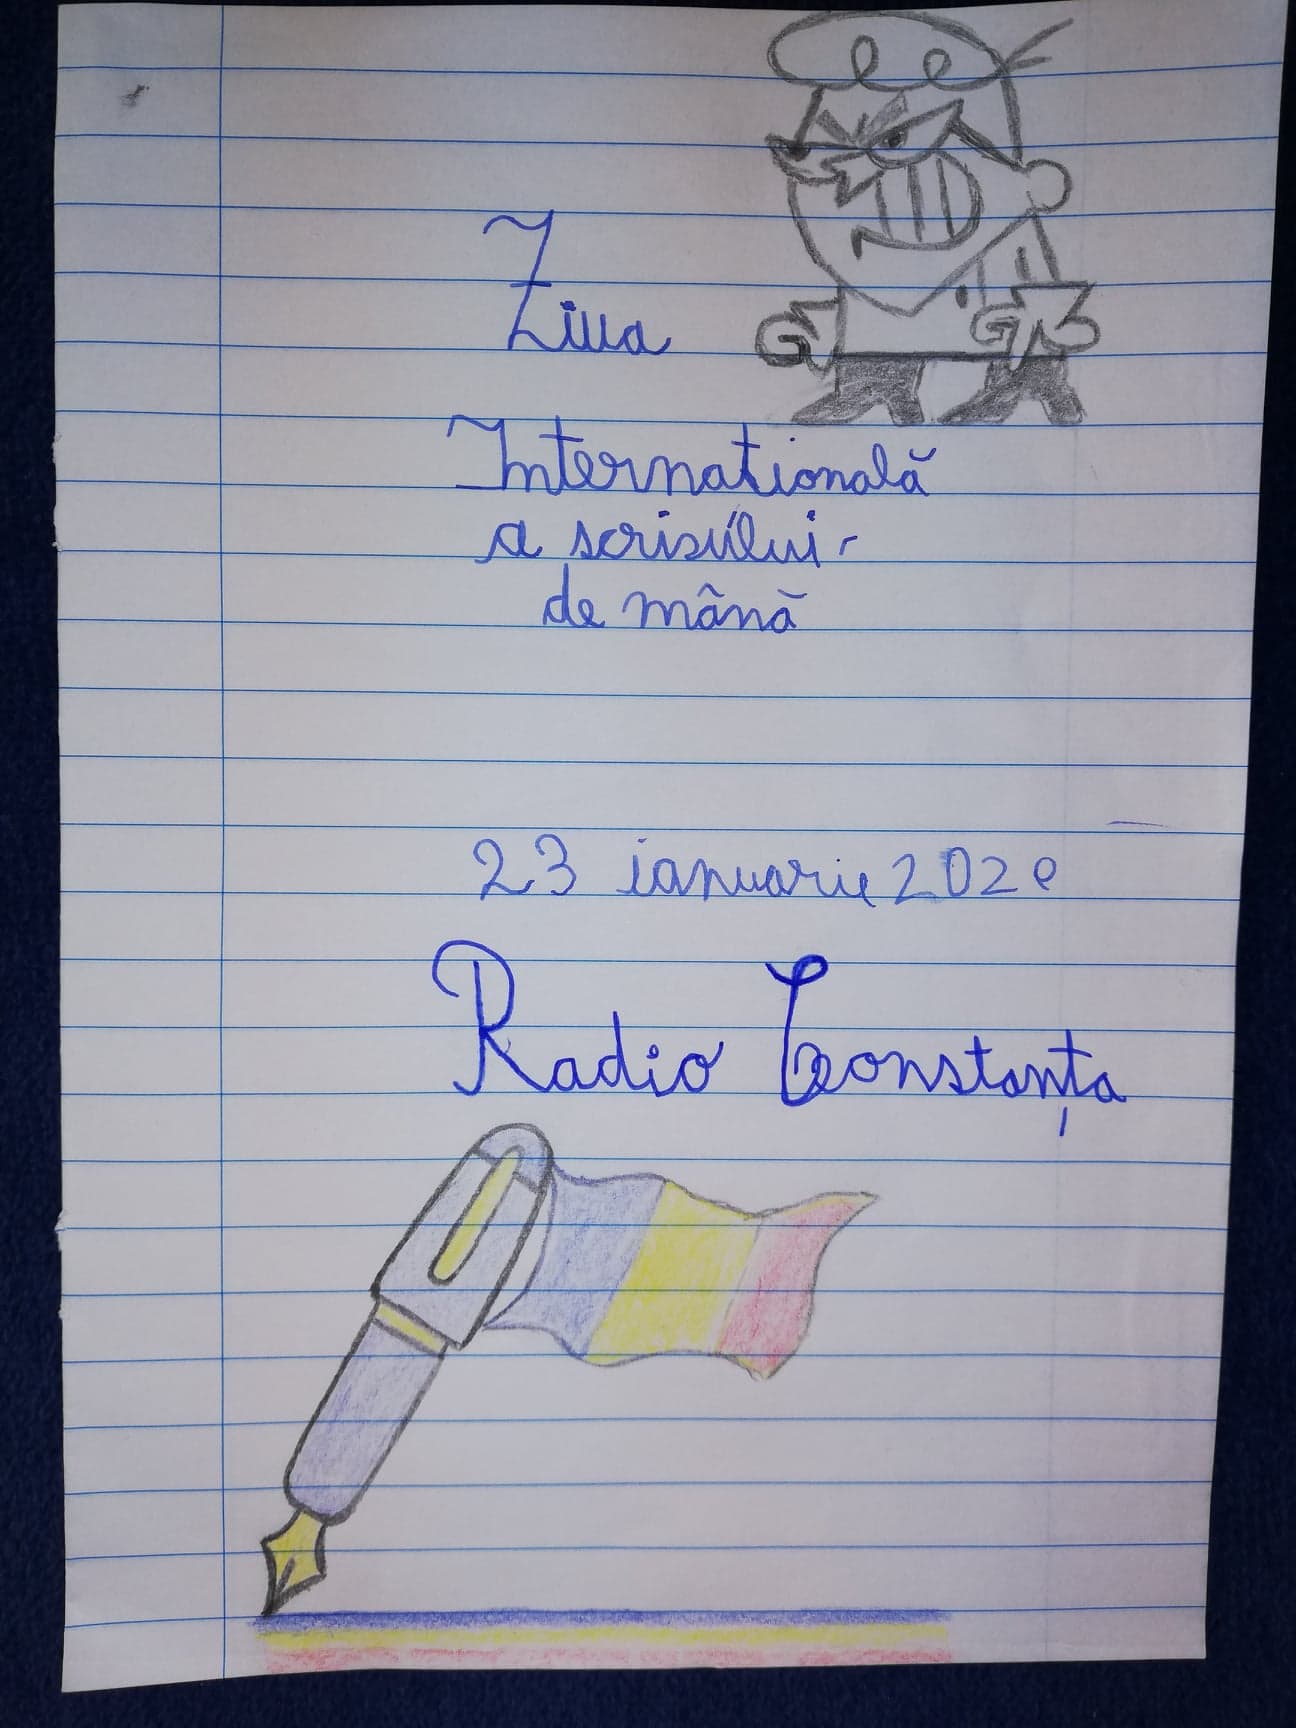 Ziua
Internatională
a scrisului
de mână
23 ianuarie 2020
Radio Constanța